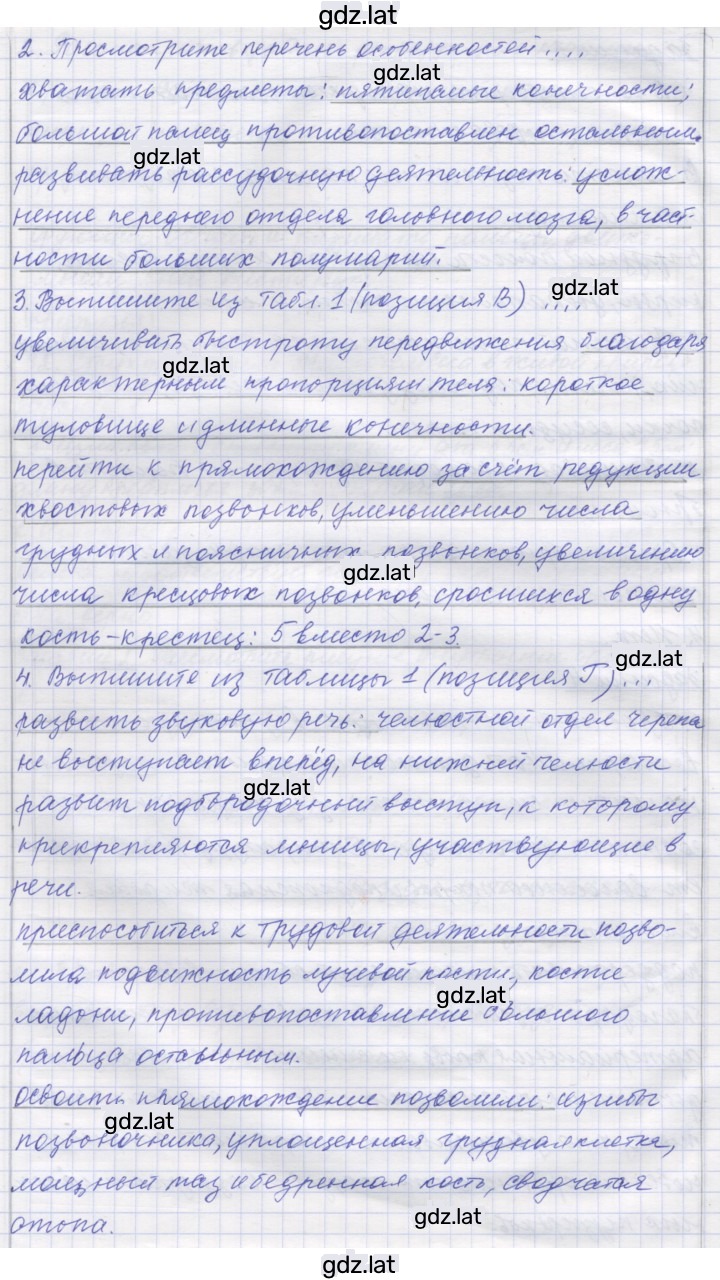 gdz.lat
2. Просмотрите перечень особенностей ....
gdz.lat
хватать предметы: пятипалые конечности;
большой палец противопоставлен остальным.
gdz.lat
развивать рассудочную деятельность: услож-
нение переднего отдела головного мозга, в част-
ности больших полушарий.
gdz.lat
3. Выпишите из табл. 1 (позиция В) ....
увеличивать быстроту передвижения благодаря
gdz.lat
характерным пропорциям тела: короткое
туловище и длинные конечности.
перейти к прямохождению за счёт редукции
хвостовых позвонков, уменьшению числа
грудных и поясничных позвонков, увеличению
gdz.lat
числа кресцовых позвонков, сросшихся в одну
кость-крестец: 5 вместо 2-3
gdz.lat
4. Выпишите из таблицы 1 (позиция Г) ...
развить звуковую речь: челюстной отдел черепа
не выступает вперёд, на нижней челюсти
gdz.lat
развит подбородочный выступ, к которому
прикрепляются мышцы, участвующие в
речи.
приспособиться к трудовой деятельности позво-
лила подвижность лучевой кости, кости
gdz.lat
ладони, противопоставление большого
пальца остальным.
освоить прямохождение позволили: изгибы
gdz.lat
позвоночника, уплощенная грудная клетка,
мощный таз и бедренная кость, сводчатая
gdz.lat
стопа.
gdz.lat